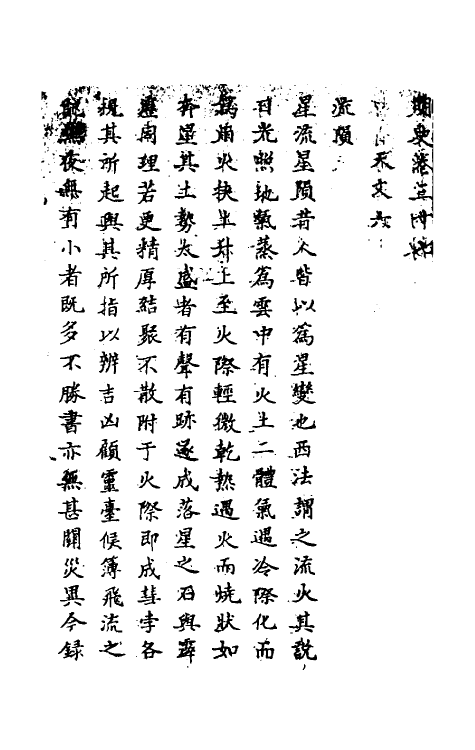 明史卷三十
天文六
流隕
星流星隕昔人皆以為星變也西法謂之流火其說
曰光照地氣蒸為雲中有火土二體氣遇冷際化而
為雨火挾土升上至火際輕微乾熱遇火而燒狀如
奔星其土勢太盛者有聲有跡遂成落星之石與霹
靂同理若更精厚結聚不散附于火際即成彗孛各
視其所起與其所指以辨吉凶顧靈臺候簿飛流之
夜無有小者既多不勝書亦無甚關災異今錄